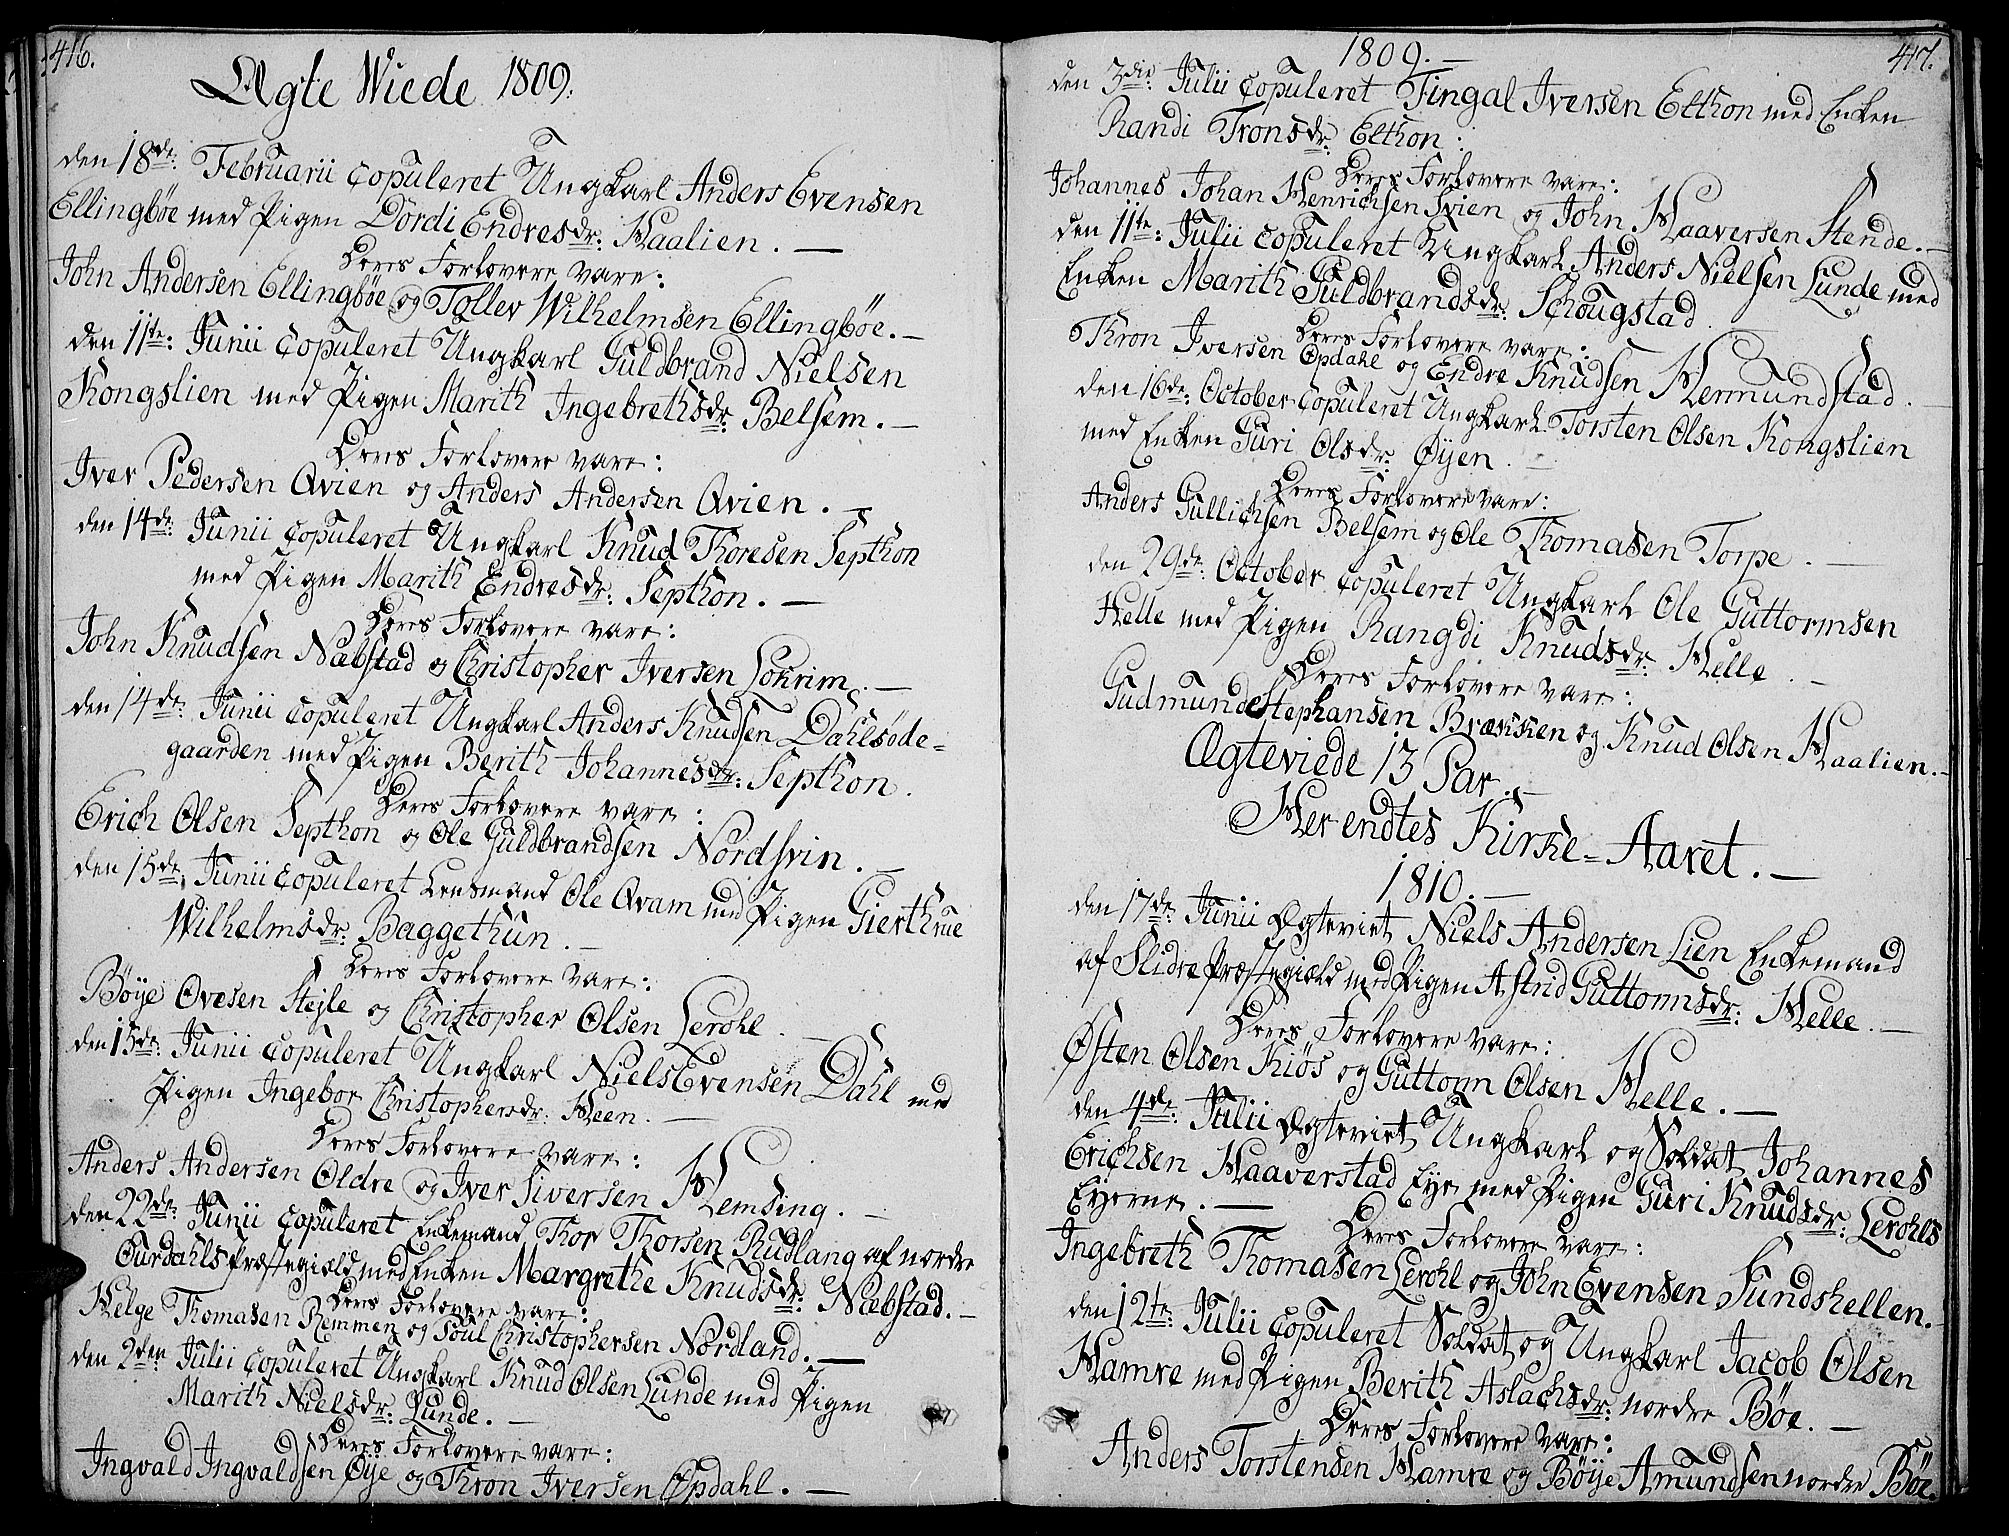 416.
Ægte Wiede 1809.
den 18de: Februarii copuleret Ungkarl Anders Evensen
Ellingböe med Pigen Dördi Endresdr: Haalien. —
Deres Forlovere vare:
John Andersen Ellingböe og Tollev Wilhelmsen Ellingböe. —
den 11te: Junii copuleret Ungkarl Guldbrand Nielsen
Kongslien med Pigen Marith Ingebrethsdr: Belsem. —
Deres Forlovere vare:
Iver Pedersen Qvien og Anders Andersen Qvien. —
den 14de: Junii copuleret Ungkarl Knud Thoresen Septhon
med Pigen Marith Endresdr: Septhon. —
Deres Forlovere vare:
John Knudsen Næbstad og Christopher Iversen Lohrim. —
den 14de: Junii copuleret Ungkarl Anders Knudsen Dahlsöde=
gaarden med Pigen Berith Johannesdr: Septhon.
Deres Forlovere vare:
Erich Olsen Septhon og Ole Guldbrandsen Nordsvin. —
den 15de: Junii copuleret Lensmand Ole Qvam med Pigen Gierthrue
Wilhelmsdr: Baggethun. —
Deres Forlovere vare:
Böye Ovesen Stejle og Christopher Olsen Lerohl. —
den 15de: Junii copuleret Ungkarl Niels Evensen Dahl med
Pigen Ingebor Christophersdr: Heen. —
Deres Forlovere vare:
Anders Andersen Oldre og Iver Siversen Hemsing. —
den 22de: Junii copuleret Enkemand Thor Thorsen Rudlang af nordre
Ourdahls Præstegiæld med Enken Margrethe Knudsdr: Næbstad. —
Deres Forlovere vare:
Helge Thomasen Remmen og Poul Christophersen Nordland. —
den 2den Julii copuleret Ungkarl Knud Olsen Lunde med Pigen
Marith Nielsdr: Lunde. —
Deres Forlovere vare:
Ingvald Ingvaldsen Öye og Thron Iversen Opdahl. —
417.
1809. —
den 3die: Julii copuleret Fingal Iversen Elthon med Enken
Randi Tronsdr: Elthon:
Deres Forlovere vare:
Johannes Johan Henrichsen Qvien og John Haaversen Stende. —
den 11te: Julii copuleret Ungkarl Anders Nielsen Lunde med
Enken Marith Guldbrandsdr: Schougstad
Deres Forlovere vare:
Thron Iversen Opdahl og Endre Knudsen Hermundstad. —
den 16de: October copuleret Ungkarl Torsten Olsen Kongslien
med Enken Guri Olsdr: Öyen. —
Deres Forlovere vare:
Anders Gullichsen Belsem og Ole Thomasen Torpe. —
den 29de: October copuleret Ungkarl Ole Guttormsen
Helle med Pigen Rangdi Knudsdr: Helle. —
Deres Forlovere vare:
Gudmund Stephansen Brækken og Knud Olsen Haalien. —
Ægteviede 13 Par. —
Her endtes Kirke=Aaret. —
1810. —
den 17de: Junii Ægteviet Niels Andersen Lien Enkemand
af Slidre Præstegiæld med Pigen Astrid Guttormsdr: Helle. —
Deres Forlovere vare:
Østen Olsen Kiös og Guttorm Olsen Helle. —
den 4de: Julii Ægteviet Ungkarl og Soldat Johannes
Erichsen Haaverstad Eye med Pigen Guri Knudsdr: Lerohls
Eyerne. —
Deres Forlovere vare:
Ingebreth Thomasen Lerohl og John Evensen Sundshellen. —
den 12te: Julii copuleret Soldat og Ungkarl Jacob Olsen
Hamre med Pigen Berith Aslachsdr: nordre Böe. —
Deres Forlovere vare:
Anders Torstensen Hamre og Böye Amundsen nordre Böe.